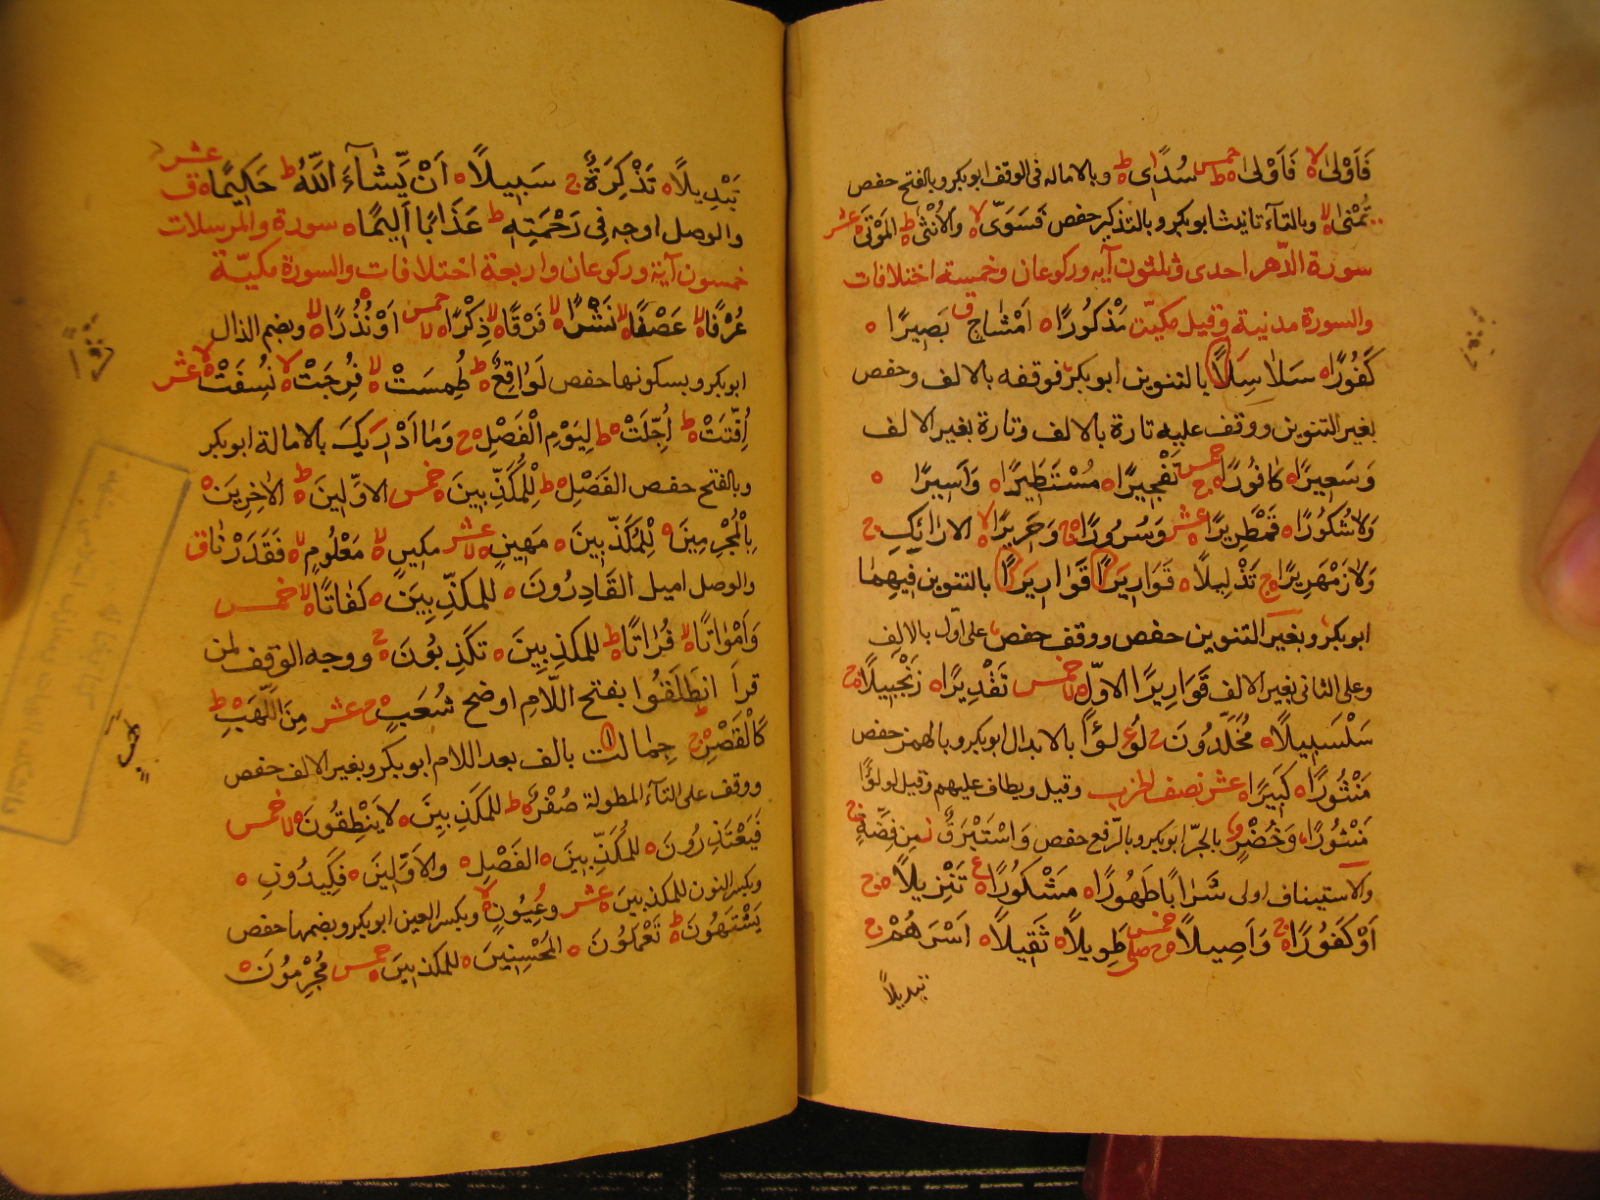 فَاَوْلىٰ لا فَاَوْلىٰ ط خمس سُدًاى ط وبالاماله فى الوقف ابوبكر وبالفتح حفص
تُمْنٰى لا وبالتآء تانيثا ابوبكر وبالتذكير حفص فَسَوّٰى لا وَالْاُنْثٰى ط الْمَوْتٰى عشر
سورة الدّهر احدى وثلثون آيه وركوعان وخمسة اختلافات
والسورة مدنية وقيل مكيّة مَذْكُورًا اَمْشَاجٍ ق بَصِيرًا
كَفُورًا سَلَاسِلًا بالتنوين ابوبكر فوقفه بالالف وحفص
بغير التنوين ووقف عليه تارة بالالف وتارة بغير الالف
وَسَعِيرًا كَافُورًا ج خمس تَفْجِيرًا مُسْتَطِيرًا وَاَسِيرًا
وَلَا شُكُورًا قَمْطَرِيرًا عشر وَسُرُورًا ج وَحَرِيرًا لا الْاَرَائِكِ ج
وَلَا زَمْهَرِيرًا ج تَذْلِيلًا قَوَارِيرًا قَوَارِيرًا بالتنوين فيهما
ابوبكر وبغير التنوين حفص ووقف حفص على اوّل بالالف
وعلى الثانى بغير الالف قَوَارِيرًا الاوّل لا خمس تَقْدِيرًا زَنْجَبِيلًا ج
سَلْسَبِيلًا مُخَلَّدُونَ ج لُؤْلُؤًا بالابدال ابوبكر وبالهمز حفص
مَنْثُورًا كَبِيرًا عشر نصف الحزب وقيل ويطاف عليهم وقيل لولؤًا
مَنْثُورًا وَخُضْرٍ بالجرّ ابوبكر وبالرّفع حفص وَاسْتَبْرَقٌ ز مِن فِضَّةٍ ج
والاستيناف اولى شَرَابًا طَهُورًا مَشْكُورًا ع تَنْزِيلًا ج
اَوْ كَفُورًا ج وَاَصِيلًا خمس صلى طَوِيلًا ثَقِيلًا اَسْرَهُمْ ج
تبديلًا
تَبْدِيلًا تَذْكِرَةٌ ج سَبِيلًا اَنْ يَّشَآءَ اللّٰهُ ط حَكِيمًا ق عشر
والوصل اوجه فِى رَحْمَتِهِ ط عَذَابًا اَلِيمًا سورة والمرسلات
خمسون آية وركوعان واربعة اختلافات والسورة مكيّة
عُرْفًا لا عَصْفًا لا نَشْرًا لا فَرْقًا لا ذِكْرًا لا خمس اَوْ نُذُرًا لا وبضم الذال
ابوبكر وبسكونها حفص لَوَاقِعٌ ط طُمِسَتْ لا فُرِجَتْ لا نُسِفَتْ لا عشر
اُقِّتَتْ ط اُجِّلَتْ ط لِيَوْمِ الْفَصْلِ ج وَمَا اَدْرٰيكَ بالامالة ابوبكر
وبالفتح حفص الفَصْلِ ط لِلْمُكَذِّبِينَ خمس الاوَّلِينَ ط الْاٰخِرِينَ
بِالْمُجْرِمِينَ لِلْمُكَذِّبِينَ مَهِينٍ لا عشر مكينٍ لا مَعْلُومٍ لا فَقَدَرْنَا ق
والوصل اميل القَادِرُونَ للمكذِّبِينَ كِفَاتًا لا خمس
وَاَمْوَاتًا لا فُرَاتًا ط للمكذبِينَ تكَذِبُونَ ج ووجه الوقف لمن
قرأ انطَلَقُوا بفتح اللّام اوضح شُعَبٍ ج عشر مِنَ اللَّهَبِ ط
كَالْقَصْرِ ج جِمَالات بالف بعد اللام ابوبكر وبغير الالف حفص
ووقف على التآء المطولة صُفْرٌ ط للمكذبِينَ لَا يَنْطِقُونَ لا خمس
فَيَعْتَذِرُونَ للمُكَذِّبِينَ الفَصْلِ وَالاَوَّلِينَ فَكِيدُونِ
وبكسر النون للمكذبِينَ عشر وعُيُونٍ لا وبكسر العين ابوبكر وبضمها حفص
يَشْتَهُونَ ط تَعْمَلُونَ المُحْسِنِينَ للمكذبينَ خمس مُجْرِمُونَ